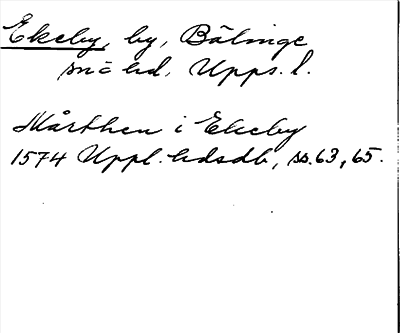 Ekeby, by, Bälinge
sn o hd, Upps. l.
Mårthen i Ekeby
1574 Uppl. hdsdb, ss. 63, 65.